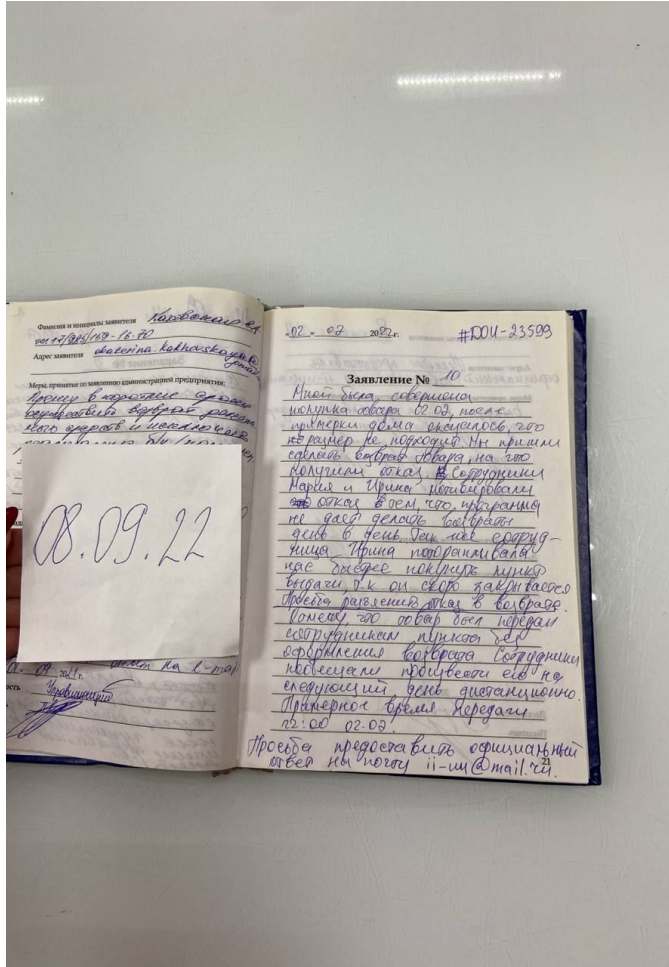 Фамилия и инициалы заявителя
Адрес заявителя ekaterina.kakhovskaya
Меры, принятые по заявлению администрацией предприятия:
Прошу в короткие сроки
осуществить возврат
средств и
08.09.22
на e-mail
Управляющий
«02» 02 2022 г. #DOU-23599
Заявление № 10
Мной была совершена
покупка товара 02.02, после
примерки дома оказалось, что
размер не подходит. Мы пришли
сделать возврат товара, на что
получили отказ. Сотрудники
Мария и Ирина мотивировали
отказ в тем, что программа
не дает делать возвраты
день в день. Так же сотруд-
ница Ирина поторапливала
нас быстрее покинуть пункт
выдачи, т.к он скоро закрывается
Просьба разъяснить отказ в возврате.
Помечу, что товар был передан
сотрудникам пункта без
оформления возврата. Сотрудники
пообещали произвести его на
следующий день дистанционно.
Примерное время передачи
02.02.
Просьба предоставить официальный
ответ на почту
21